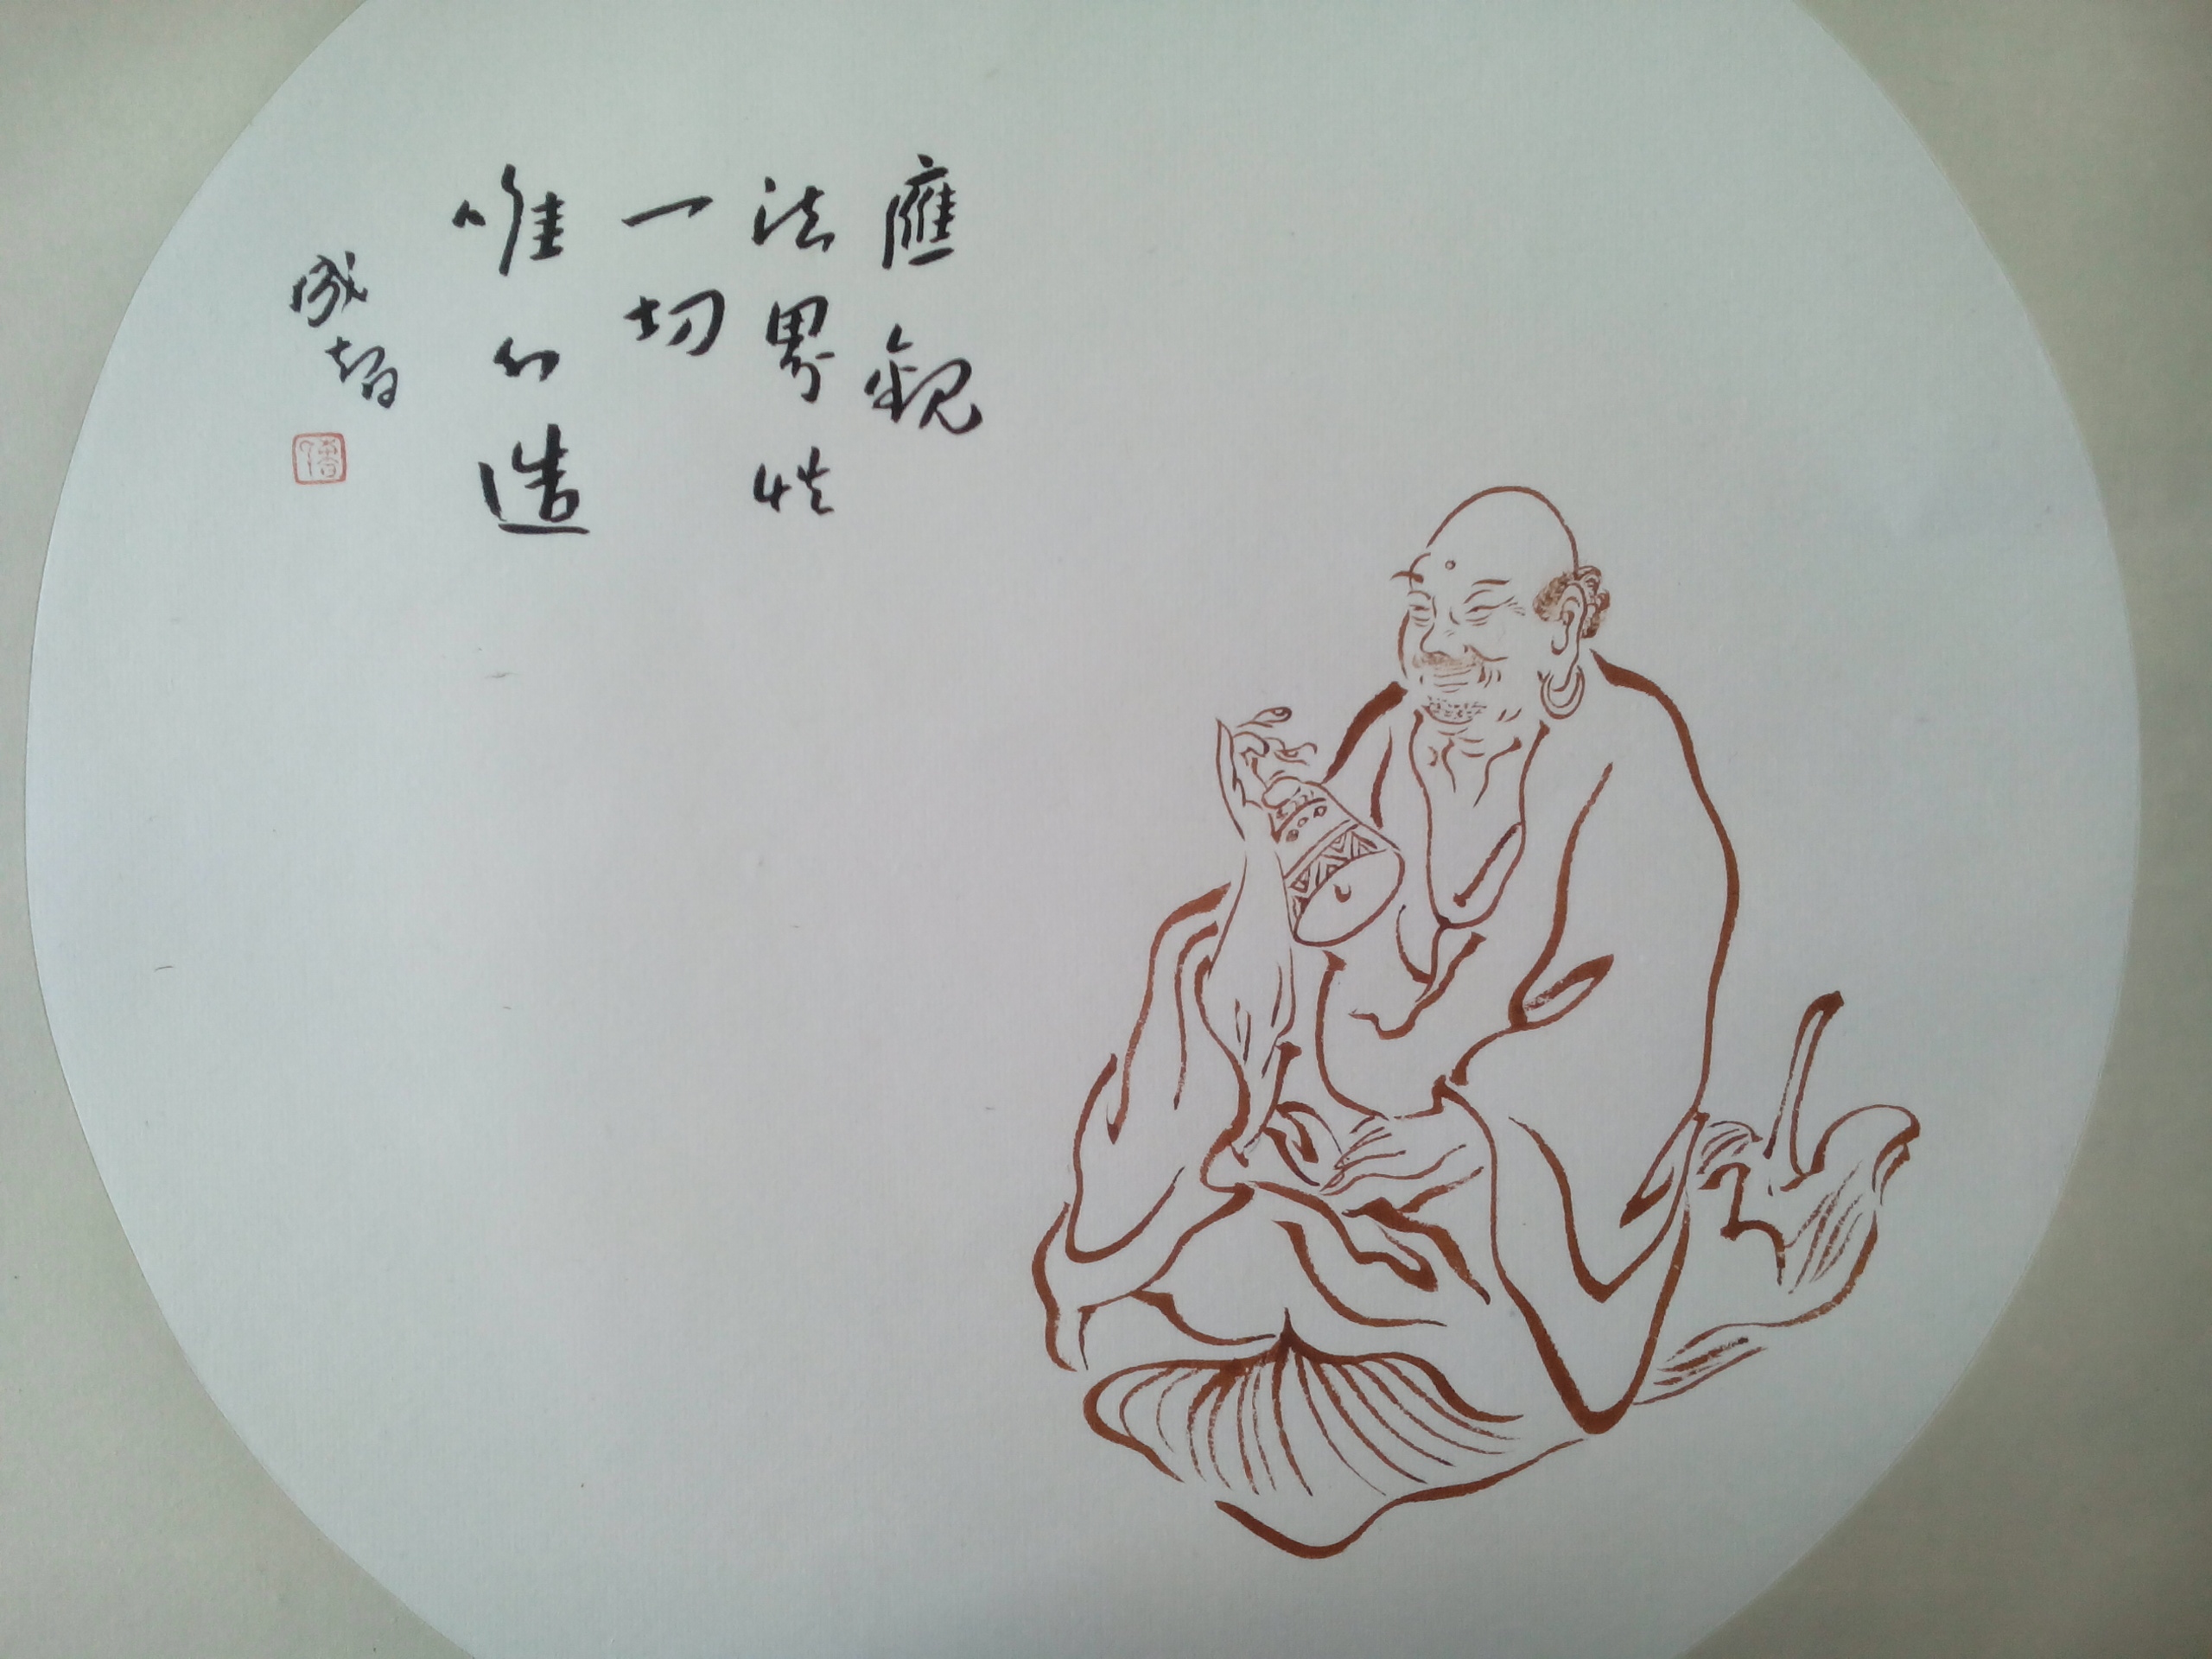 應觀
法界性
一切
唯心造
成